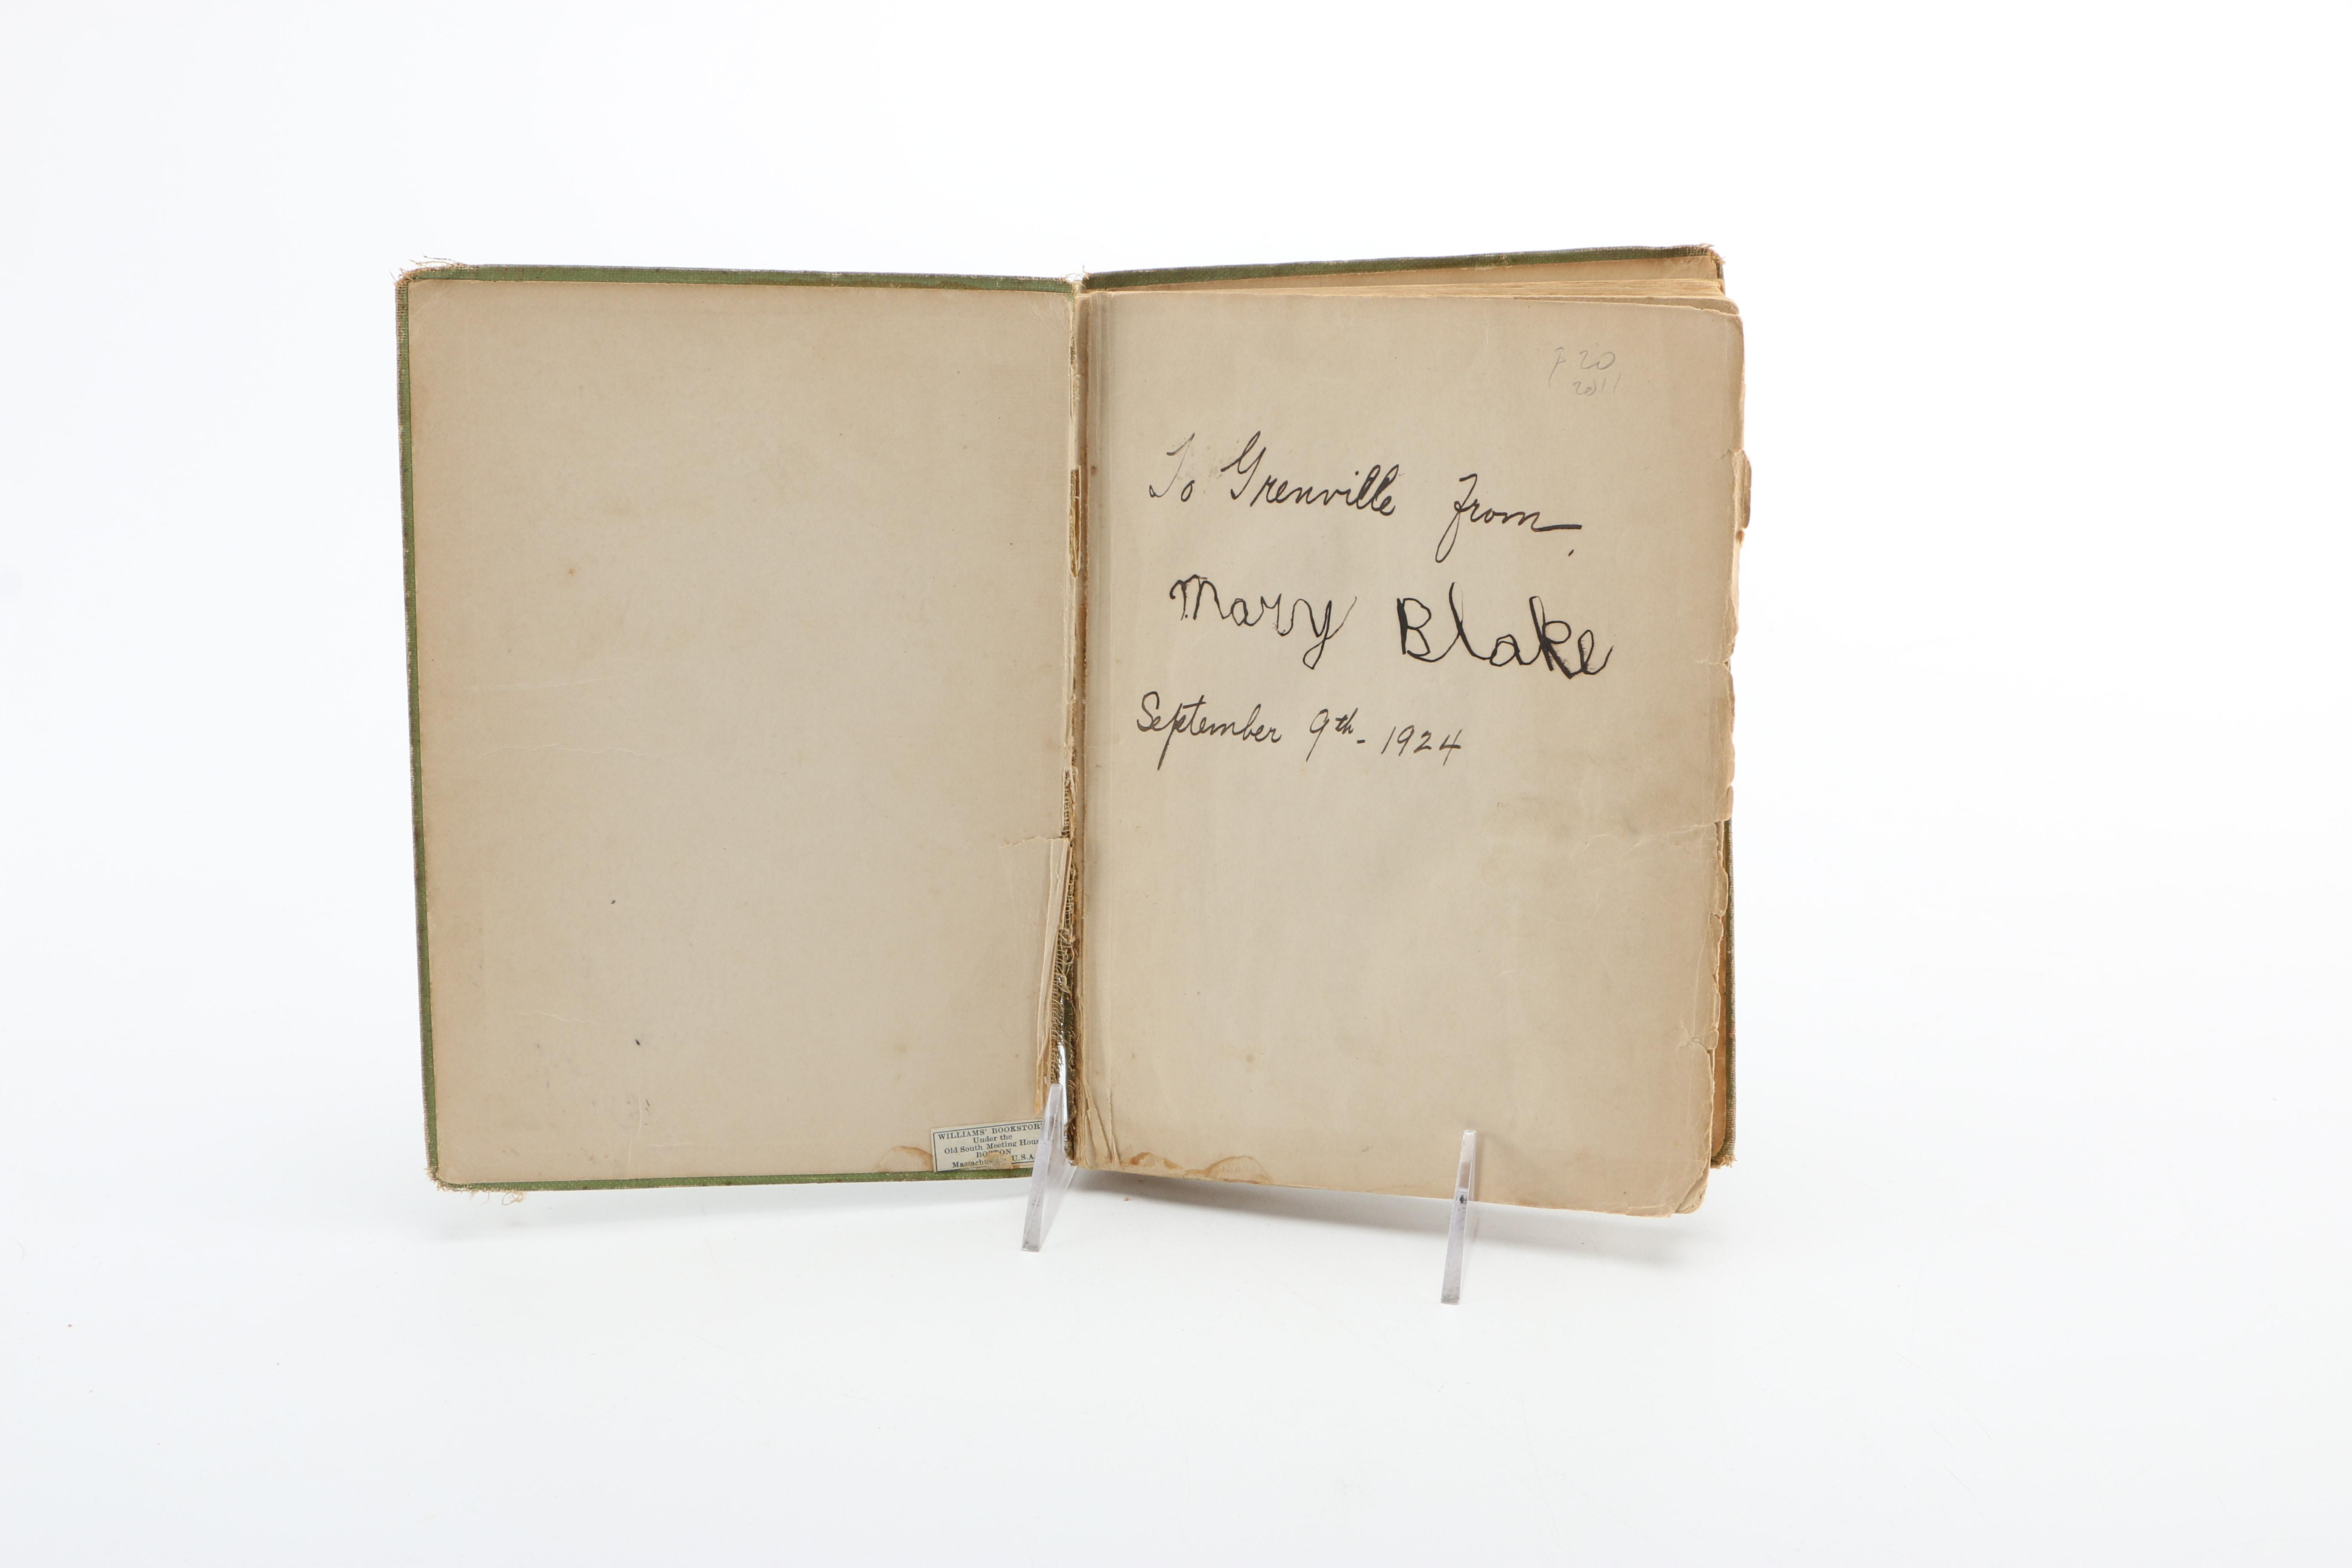 WILLIAMS' BOOKSTOR
Under the
Old South Meeting Hou
BOSTON
U.S.A.
20
2011
To Grenville from
Mary Blake
September 9th - 1924